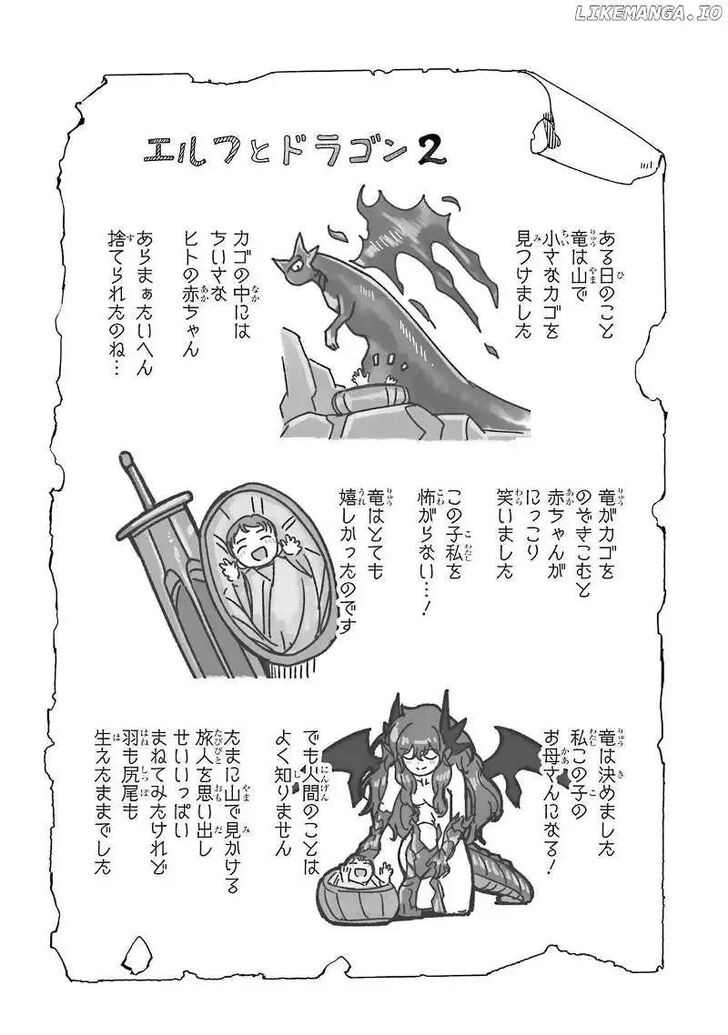 LIKEMANGA.IO
エルフとドラゴン2
ある日のこと
竜は山で
小さなカゴを
見つけました
カゴの中には
ちいさな
ヒトの赤ちゃん
あらまぁたいへん
捨てられたのね…
竜がカゴを
のぞきこむと
赤ちゃんが
にっこり
笑いました
この子私を
怖がらない…!
竜はとても
嬉しかったのです
竜は決めました
私この子の
お母さんになる!
でも人間のことは
よく知りません
たまに山で見かける
旅人を思い出し
せいいっぱい
まねてみたけれど
羽も尻尾も
生えたままでした